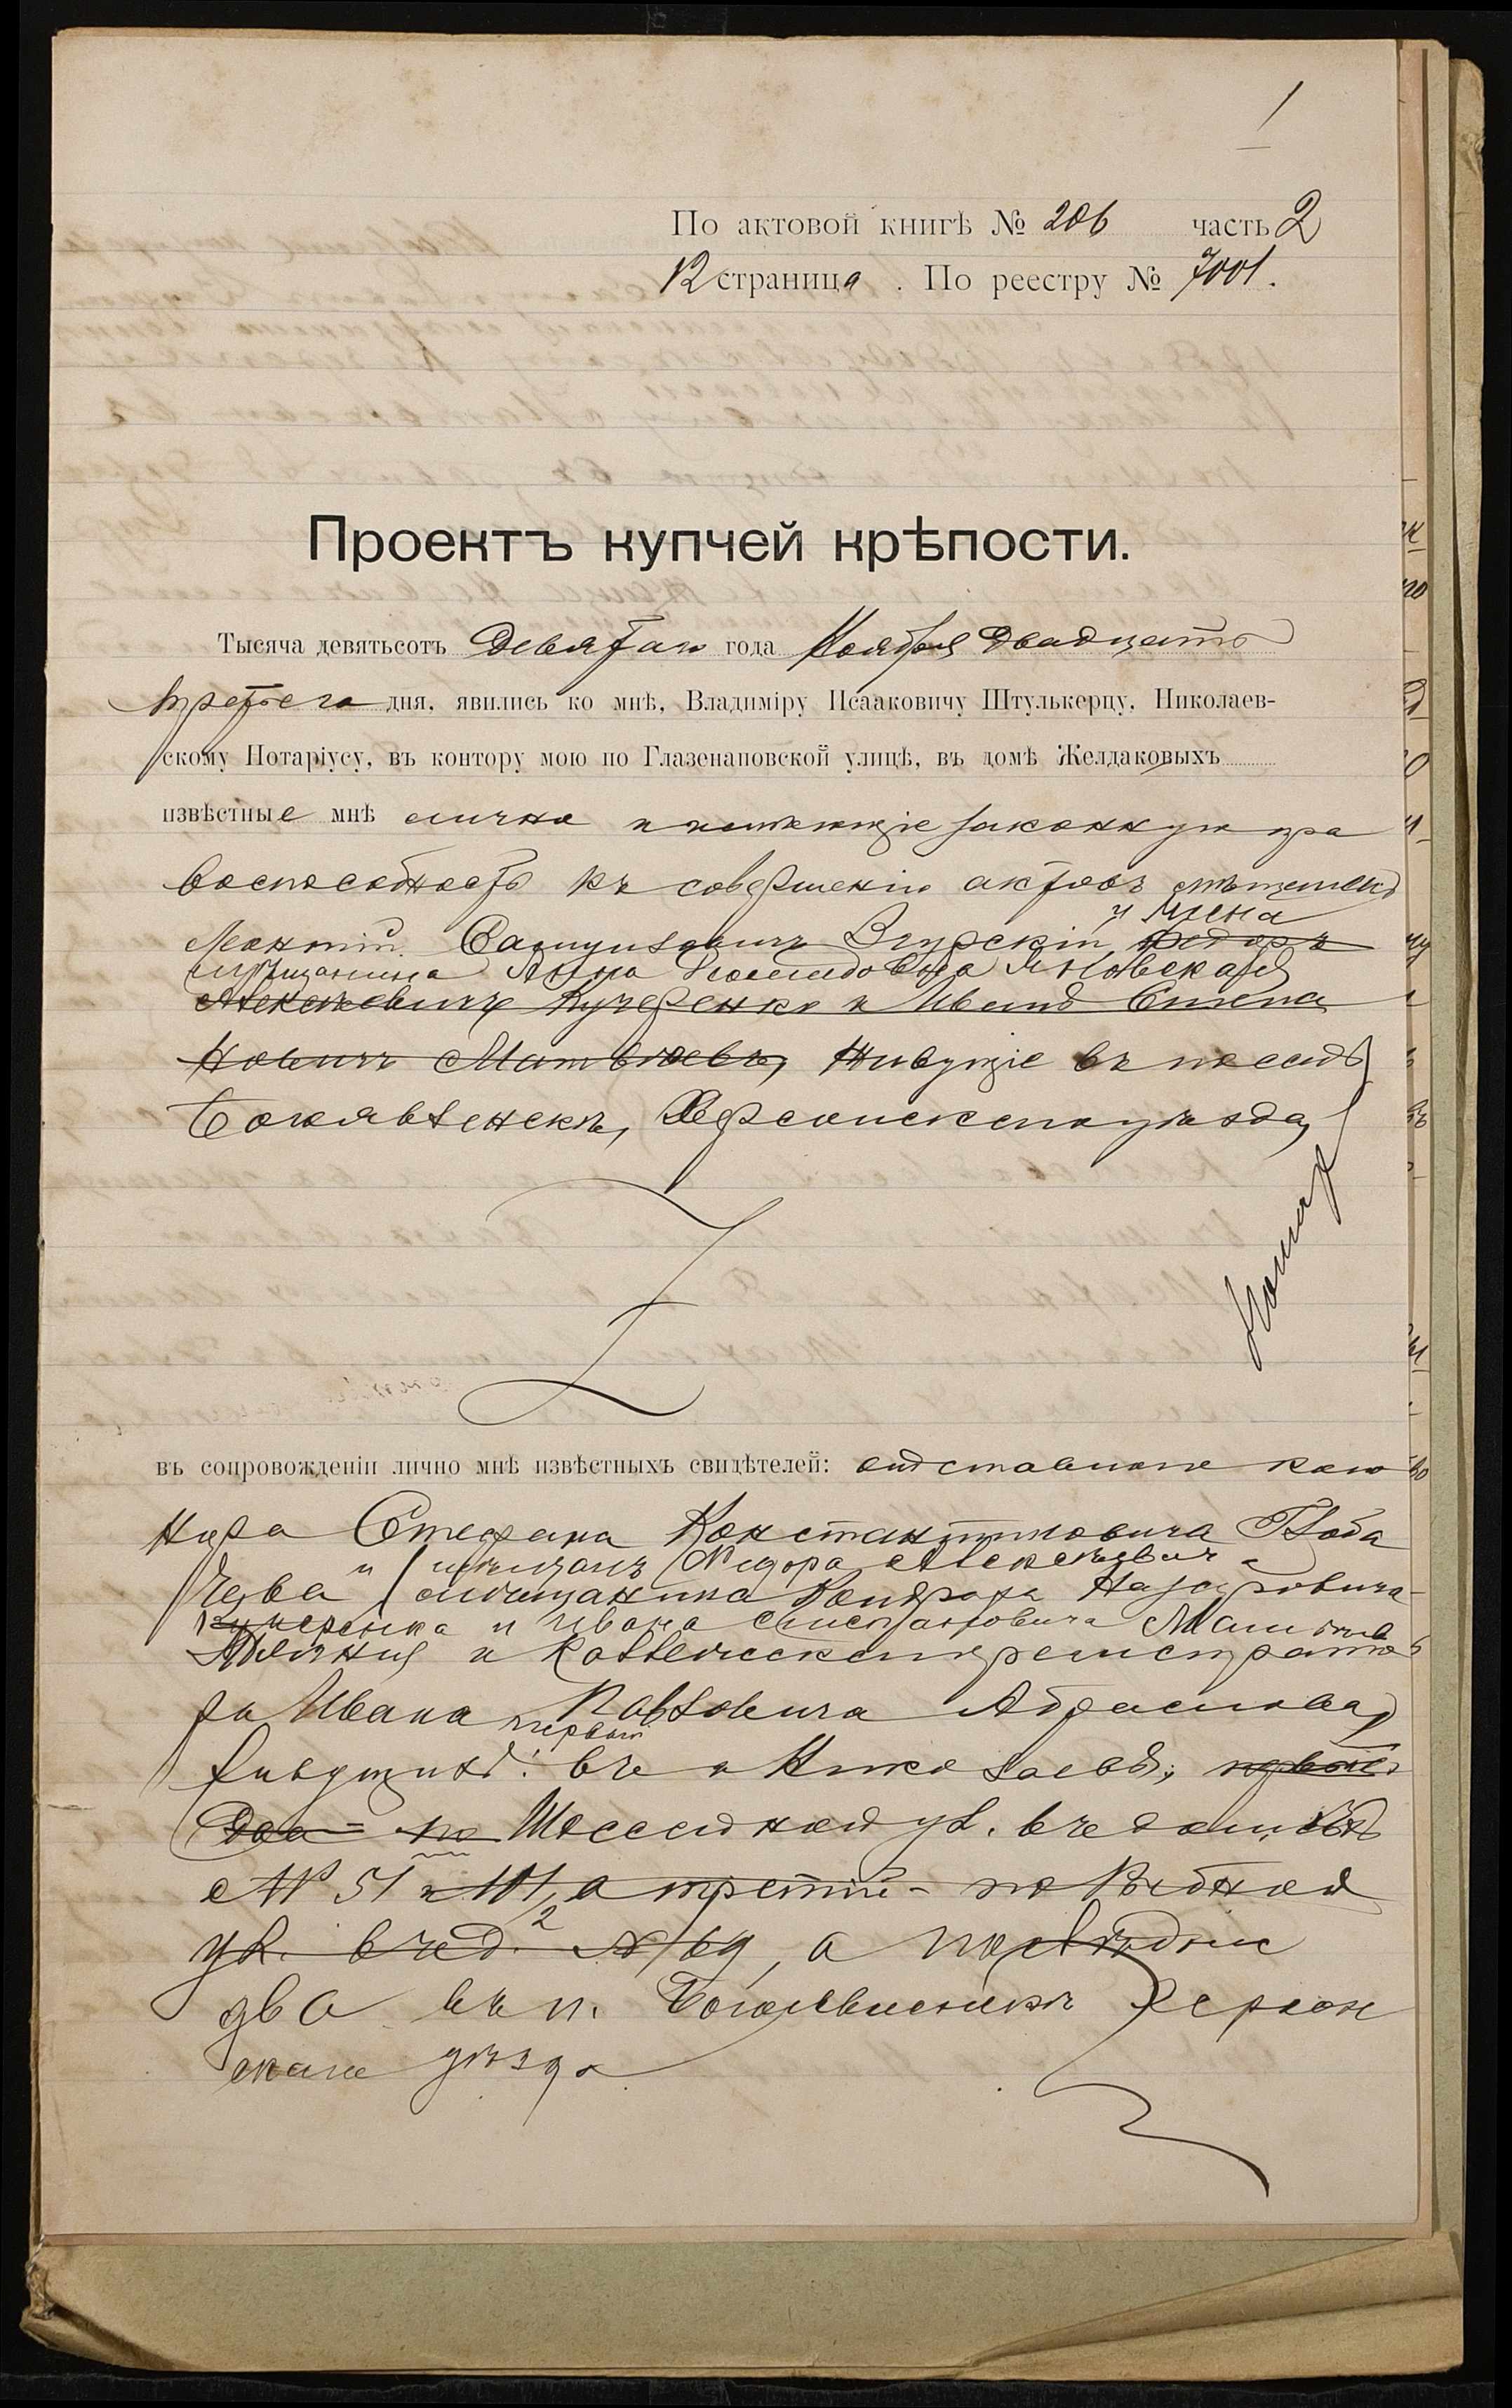 1
По актовой книгѣ № 206 часть 2
12 страница. По реестру № 7001.
Проектъ купчей крѣпости.
Тысяча девятьсотъ девятаго года Ноября двадцать
третьего дня, явились ко мнѣ, Владиміру Исааковичу Штулькерцу, Николаев-
скому Нотаріусу, въ контору мою по Глазенаповской улицѣ, въ домѣ Желдаковыхъ
извѣстные мнѣ лично и имѣющіе законную пра
воспособность къ совершенію актовъ мѣщане
и жена
Леонтій Самуиловичъ Згурскій, Федоръ
мѣщанина Анна Яновская
Алексѣевичъ Кучеренко и Иванъ Степа
новичъ Матвѣевъ, живущіе въ посадѣ
Богоявленскъ, Херсонскаго уѣзда,
въ сопровожденіи лично мнѣ извѣстныхъ свидѣтелей: отставного кано
нира Стефана Константиновича
и мѣщанъ Федора Алексѣевича
мѣщанина Кондрата Назаровича
Кучеренка и Ивана Степановича
и Коллежскаго регистрато
ра Ивана Павловича Абрамова,
первый
живущихъ: въ г. Николаевѣ, первые
два по ул. въ домѣ
№ 51 и 101, а третій - по Рыбной
2
ул. въ д. № 69, а послѣдніе
два въ п. Богоявленскѣ Херсон
скаго уѣзда